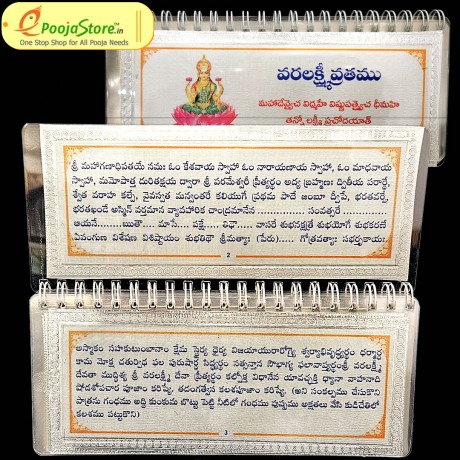 PoojaStore.in
One Stop Shop for All Pooja Needs
వరలక్ష్మీవ్రతము
మహాదేవ్యైచ విద్మహే విష్ణుపత్న్యైచ ధీమహి
తన్నో లక్ష్మీ ప్రచోదయాత్
శ్రీ మహాగణాధిపతయే నమః ఓం కేశవాయ స్వాహా ఓం నారాయణాయ స్వాహా, ఓం మాధవాయ
స్వాహా, మమోపాత్త దురితక్షయ ద్వారా శ్రీ పరమేశ్వరీ ప్రీత్యర్థం అద్య బ్రహ్మణః ద్వితీయ పరార్థే,
శ్వేత వరాహ కల్పే, వైవస్వత మన్వంతరే కలియుగే ప్రథమ పాదే జంబూ ద్వీపే, భరతవర్షే,
భరతఖండే అస్మిన్ వర్తమాన వ్యావహారిక చాంద్రమానేన .................. సంవత్సరే ..............
ఆయనే......ఋతౌ .... మాసే..... పక్షే.... తిథౌ ..... వాసరే శుభనక్షత్రే శుభయోగే శుభకరణే
ఏవంగుణ విశేషణ విశిష్టాయాం శుభతిథౌ శ్రీమత్యాః (పేరు)..... గోత్రవత్యాః సభర్తృకాయాః
2
అస్మాకం సహకుటుంబానాం క్షేమ స్థైర్య ధైర్య విజయాయురారోగ్య ఐశ్వర్యాభివృద్ధ్యర్థం ధర్మార్థ
కామ మోక్ష చతుర్విధ ఫల పురుషార్థ సిద్ధ్యర్థం సత్సన్తాన సౌభాగ్య ఫలావాప్త్యర్థంశ్రీ వరలక్ష్మీ
దేవతా ముద్దిశ్య శ్రీ వరలక్ష్మీ దేవతా ప్రీత్యర్థం కల్పోక్త విధానేన యావచ్ఛక్తి ధ్యానా వాహనాది
షోడశోపచార పూజాం కరిష్యే. తదంగత్వేన కలశపూజాం కరిష్యే. (అని సంకల్పము చేసుకొని
పాత్రను గంధము అద్ది కుంకుమ బొట్టు పెట్టి నీటిలో గంధము పుష్పము అక్షతలు వేసి కుడిచేతిలో
కలశము పట్టుకొని)
3